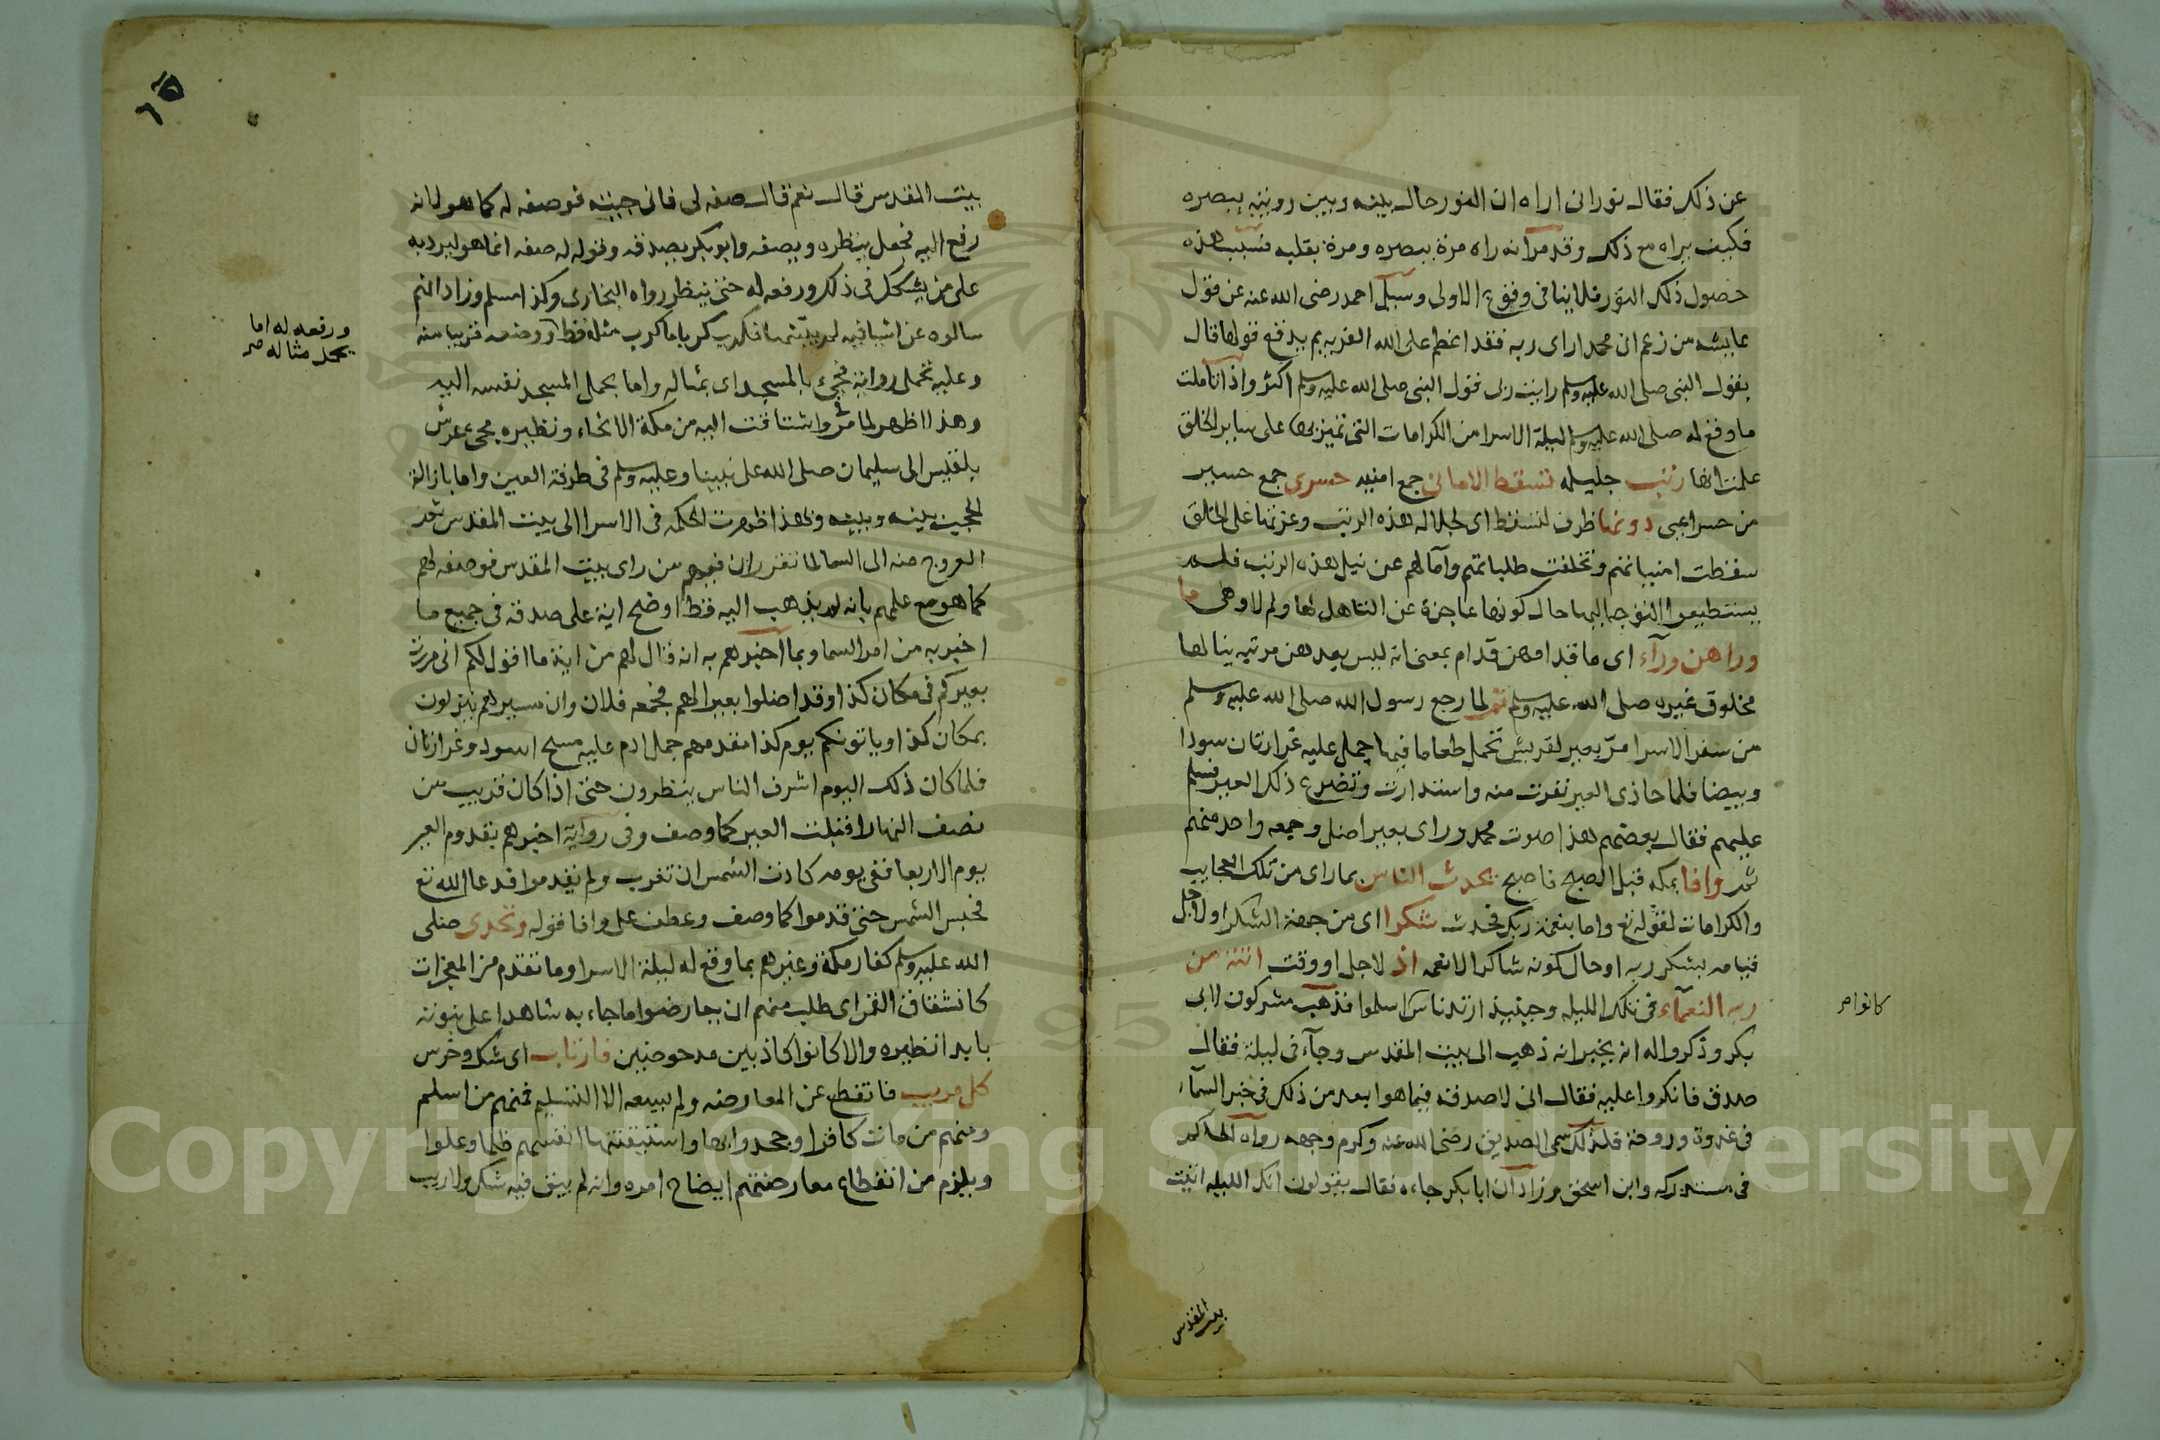 عن ذلك فقال نوراني اراه ان النور حال بينه وبين رويته ببصره
فكيف يراه مع ذلك وقد مر انه راه مرة ببصره ومرة بقلبه فسبب هذه
حصول ذلك النور فلا ينافي وقوع الاولى وسيل احمد رضي الله عنه عن قول
عايشه من زعم ان محمدا راى ربه فقد اعظم على الله الفريه بم يدفع قولها قال
بقول النبي صلى الله عليه وسلم رايت ربي قول النبي صلى الله عليه وسلم اكثر واذا تاملت
ما وقع له صلى الله عليه وسلم ليلة الاسرا من الكرامات التي تميز بها على ساير الخلق
علمت انها رتب جليله تسقط الاماني جمع امنيه حسرى جمع حسير
من حسر اعيى دونها ظرف لتسقط اى لجلاله هذه الرتب وعزتها على الخلق
سقطت امنياتهم وتخلفت طلباتهم وآمالهم عن نيل هذه الرتب فلم
يستطيعوا التوجه اليها حال كونها عاجزة عن التاهل لها ولم لا وهى ما
وراهن ورآء اى ما قدامهن قدام بمعنى انه ليس بعدهن مرتبه ينالها
مخلوق غيره صلى الله عليه وسلم ثم لما رجع رسول الله صلى الله عليه وسلم
من سفر الاسرا مرّ بعير لقريش تحمل طعاما فيها جمل عليه غرارتان سودا
وبيضا فلما حاذى العير نفرت منه واستدارت وتضرع ذلك العير فسلم
عليهم فقال بعضهم هذا صوت محمد وراى بعير اضل وجمعه واحد منهم
ثم وافا بمكه قبل الصبح فاصبح يحدث الناس بما راى من تلك العجايب
والكرامات لقوله تع واما بنعمة ربك فحدث شكرا اى من جهة الشكر او لاجل
قيامه بشكر ربه او حال كونه شاكرا لانعمه اذ لاجل او وقت اتته من
ربه النعمآء في تلك الليله وحينيذ ارتد ناس اسلموا فذهب مشركون لابى
كانوا صح
بكر وذكروا له انه يخبر انه ذهب الى بيت المقدس وجآء في ليلة فقال
صدق فانكروا عليه فقال انى لاصدقه فيما هو ابعد من ذلك في خبر السمآء
في غدوة وروحة فلذلك سمى الصديق رضى الله عنه وكرم وجهه رواه الحاكم
في مستدركه وابن اسحق وزاد ان ابا بكر جاءه فقال يقولون انك الليله اتيت
بيت المقدس
بيت المقدس قال نعم قال صفه لي فاني جيته فوصفه له كما هو لانه
رفع اليه فجعل ينظره ويصفه وابو بكر يصدقه وقوله له صفه انما هو ليرد به
على من يشكل في ذلك ورفعه له حتى ينظر رواه البخارى وكذا مسلم وزاد انهم
سالوه عن اشيا فيه لم يثبتها فكرب كربا ما كرب مثله قط وضعه قريبا منه
ورفعه له اما
بحمل مثاله صح
وعليه تحمل رواية فجيء بالمسجد اى بمثاله واما بحمل المسجد نفسه اليه
وهذا اظهر لما مر واشتاقت اليه من مكة الانحاء ونظيره مجيء عرش
بلقيس الى سليمان صلى الله على نبينا وعليه وسلم في طرفة العين واما بازالة
الحجب بينه وبينه وبهذا ظهرت الحكمه في الاسرا الى بيت المقدس ثم
العروج منه الى السما لما تقرر ان فيهم من راى بيت المقدس فوصفه لهم
كما هو مع علمهم بانه لم يذهب اليه قط اوضح اية على صدقه في جميع ما
اخبر به من امر السما وبما اخبرهم به انه قال لهم من اية ما اقول لكم اني مررت
بعيركم في مكان كذا وقد اضلوا بعيرا لهم فجمعه فلان وان مسيرهم ينزلون
بمكان كذا وياتونكم يوم كذا مقدمهم جمل ادم عليه مسح اسود وغرارتان
فلما كان ذلك اليوم اشرف الناس ينظرون حتى اذا كان قريب من
نصف النهار اقبلت العير كما وصف وفى رواية اخبرهم بقدوم العير
يوم الاربعا ففي يومه كادت الشمس ان تغرب ولم يقدموا فدعا الله تع
فحبس الشمس حتى قدموا كما وصف وعطف على وافا قوله وتحدى صلى
الله عليه وسلم كفار مكة وغيرهم بما وقع له ليلة الاسرا وما تقدم من المعجزات
كانشقاق القمر اى طلب منهم ان يعارضوا ما جاء به شاهدا على نبوته
بابدا نظيره والا كانوا كاذبين مدحوضين فارتاب اى شك وخرس
كل مريب فانقطع عن المعارضه ولم يسعه الا التسليم فمنهم من اسلم
ومنهم من مات كافرا وجحدوا بها واستيقنتها انفسهم ظلما وعلوا
ويلزم من انقطاع معارضتهم ايضاح امره وانه لم يبق فيه شك ولا ريب
Copyright © King Saud University